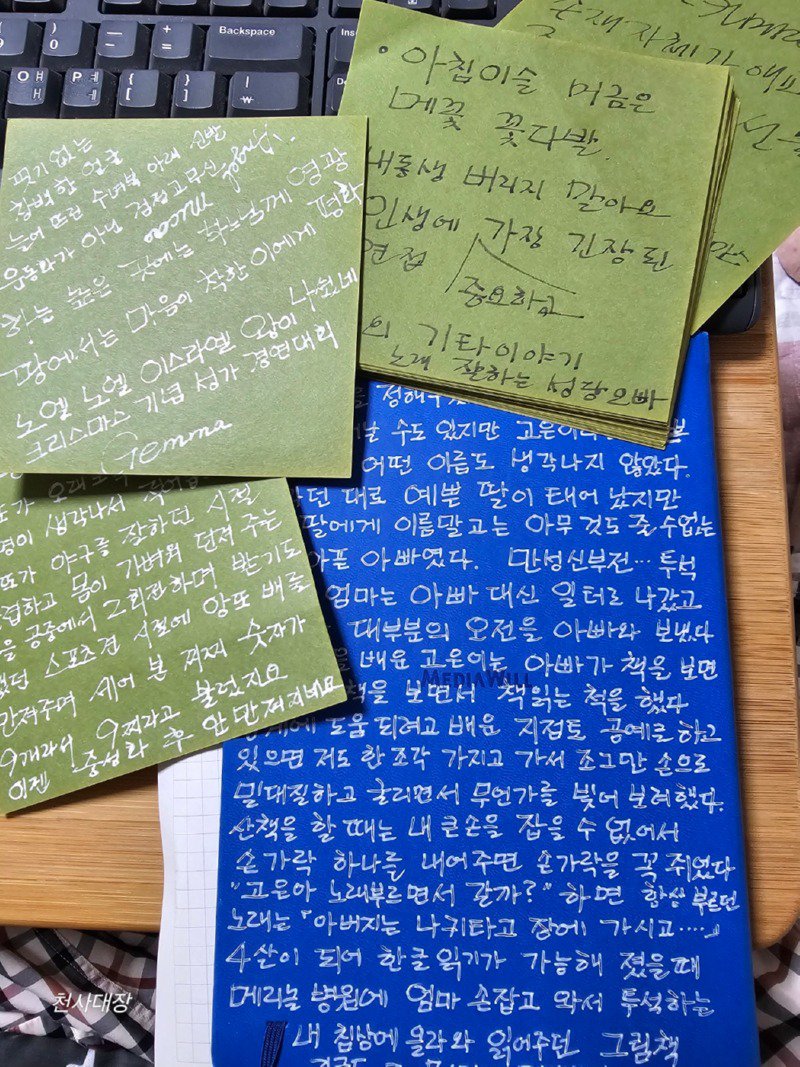 Backspace
Ins
핏기 없는
창백한 얼굴
눌러 뜨런 수녀복 아래 신발
운동화가 아닌 검정고무신
하늘 높은 곳에는 하느님께 영광
땅에서는 마음이 착한 이에게 평화
노엘 노엘 이스라엘 왕이 나셨네
크리스마스 기념 성가 경연대회
Gemma
• 아침이슬 머금은
메꽃 꽃다발
내동생 버리지 말아요
인생에 가장 긴장된
면접
중요하고
의 기타이야기
노래 잘하는 성당오빠
존재 자체가
생각나서
또가 야구를 잘하던 시절
몸이 가벼워 던져 주는
공중에서 2회전하며 받기도
했던 스포츠견 시절에 앙또 배를
만져주며 세어 본 찌찌 숫자가
9개라서 9찌라고 불렀지요
이젠 중성화 후 안 만져지네요
수도 있지만 고은이
어떤 이름도 생각나지 않았다.
던 대로 예쁜 딸이 태어 났지만
딸에게 이름말고는 아무 것도 줄 수없는
아픈 아빠였다. 만성신부전… 투석
엄마는 아빠 대신 일터로 나갔고
대부분의 오전을 아빠와 보냈다
을 배운 고은이는 아빠가 책을 보면
책을 보면서 책읽는 척을 했다
MEDIAWILL
도움 되려고 배운 지점토 공예를 하고
있으면 저도 한 조각 가지고 가서 조그만 손으로
밀대질하고 굴리면서 무언가를 빚어 보려했다.
산책을 할 때는 내 큰손을 잡을 수 없어서
손가락 하나를 내어주면 손가락을 꼭 쥐었다
"고은아 노래부르면서 갈까?" 하면 항상 부르던
노래는 「아버지는 나귀타고 장에 가시고····」
4살이 되어 한글 읽기가 가능해 졌을때
메리놀 병원에 엄마 손잡고 와서 투석하는
내 침상에 올라와 읽어주던 그림책
천사대장